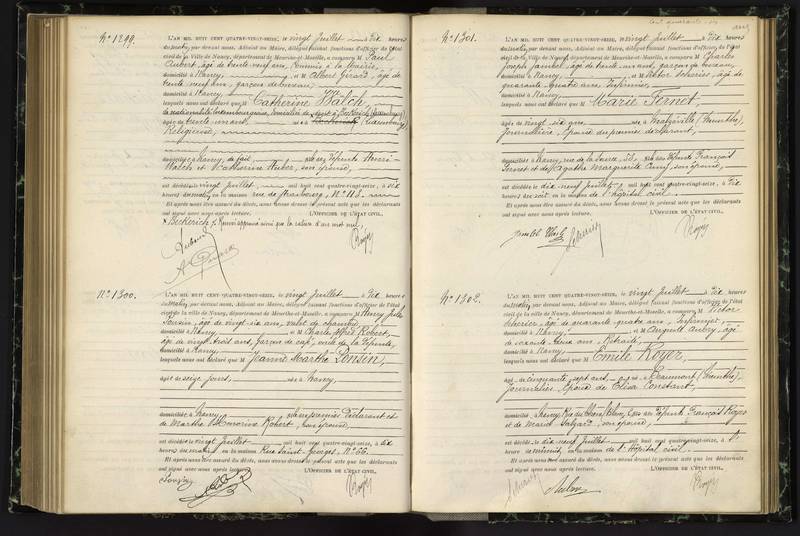 N° 1299.
L'AN MIL HUIT CENT QUATRE-VINGT-SEIZE, le vingt Juillet à dix heures
du matin, par devant nous, Adjoint au Maire, délégué faisant fonctions d'officier de l'état
civil de la Ville de Nancy, département de Meurthe-et-Moselle, a comparu M Paul
Aubert, âgé de trente neuf ans, commis à la Mairie,
domicilié à Nancy, et M Albert Girard, âgé de
trente neuf ans, garçon de bureau,
domicilié à Nancy,
lesquels nous ont déclaré que M Catherine Walch,
de nationalité luxembourgeoise, domiciliée de droit à Beckerich (Luxembourg)
âgée de trente-un ans, née à (Luxembourg)
Religieuse,
domiciliée à Nancy, de fait, fille des défunts Henri
Walch et Catherine Huber, son épouse,
est décédée le vingt Juillet mil huit cent quatre-vingt-seize, à dix
heures du matin, en la maison rue de Strasbourg, N° 118.
Et après nous être assuré du décès, nous avons dressé le présent acte que les déclarants
ont signé avec nous après lecture. L'OFFICIER DE L'ÉTAT CIVIL,
x Beckerich x Renvoi approuvé ainsi que la rature d'un mot nul,
Aubert
A. Girard
N° 1300.
L'AN MIL HUIT CENT QUATRE-VINGT-SEIZE, le vingt Juillet à dix heures
du matin, par devant nous, Adjoint au Maire, délégué faisant fonctions d'officier de l'état
civil de la Ville de Nancy, département de Meurthe-et-Moselle, a comparu M Henry Jules
Ponsin, âgé de vingt-six ans, valet de chambre,
domicilié à Nancy, et M Charles Alfred Robert,
âgé de vingt trois ans, garçon de café, oncle de la défunte,
domicilié à Nancy,
lesquels nous ont déclaré que M Jeanne Marthe Ponsin,
âgée de seize jours, née à Nancy,
domiciliée à Nancy, fille du premier déclarant et
de Marthe Honorine Robert, son épouse,
est décédée le vingt Juillet mil huit cent quatre-vingt-seize, à dix
heures du matin, en la maison Rue Saint-Georges, N° 66.
Et après nous être assuré du décès, nous avons dressé le présent acte que les déclarants
ont signé avec nous après lecture. L'OFFICIER DE L'ÉTAT CIVIL,
Ponsin
N° 1301.
L'AN MIL HUIT CENT QUATRE-VINGT-SEIZE, le vingt Juillet à dix heures
du matin, par devant nous, Adjoint au Maire, délégué faisant fonctions d'officier de l'état
civil de la Ville de Nancy, département de Meurthe-et-Moselle, a comparu M Charles
Joseph âgé de trente un ans, garçon de bureau,
domicilié à Nancy, et M Victor Scherier, âgé de
quarante quatre ans, Infirmier,
domicilié à Nancy,
lesquels nous ont déclaré que M Marie Fernet,
âgée de vingt six ans, née à (Meurthe),
Journalière, épouse du premier déclarant,
domiciliée à Nancy, rue de la fille des défunts François
Fernet et de Agathe Marguerite son épouse,
est décédée le dix neuf Juillet mil huit cent quatre-vingt-seize, à dix
heures du soir, en la maison de l'hôpital civil.
Et après nous être assuré du décès, nous avons dressé le présent acte que les déclarants
ont signé avec nous après lecture. L'OFFICIER DE L'ÉTAT CIVIL,
N° 1302.
L'AN MIL HUIT CENT QUATRE-VINGT-SEIZE, le vingt Juillet à dix heures
du matin, par devant nous, Adjoint au Maire, délégué faisant fonctions d'officier de l'état
civil de la Ville de Nancy, département de Meurthe-et-Moselle, a comparu M Victor
Scherier, âgé de quarante-quatre ans, Infirmier,
domicilié à Nancy, et M Auguste Aubry, âgé
de soixante deux ans, Retraité,
domicilié à Nancy,
lesquels nous ont déclaré que M Emile Royer,
âgé de cinquante sept ans, né à (Meurthe),
Journalier, époux de Elisa Constant,
domicilié à Nancy, fils des défunts François Royer
et de Marie son épouse,
est décédé le dix neuf Juillet mil huit cent quatre-vingt-seize, à
heures de en la maison de l'hôpital civil.
Et après nous être assuré du décès, nous avons dressé le présent acte que les déclarants
ont signé avec nous après lecture. L'OFFICIER DE L'ÉTAT CIVIL,